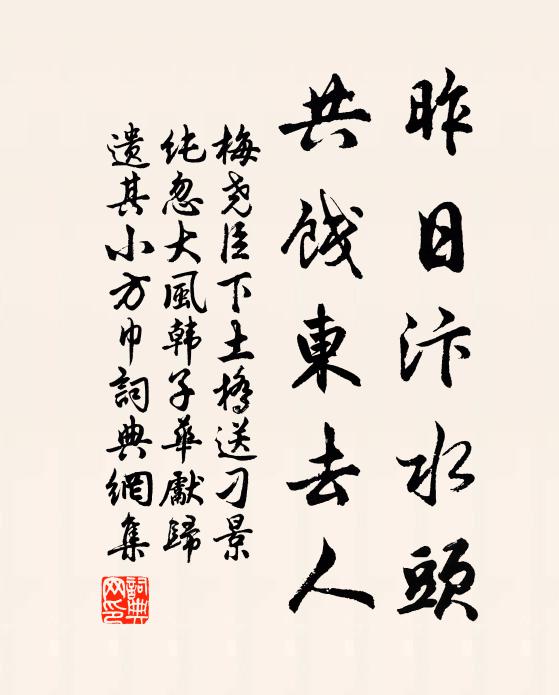 昨日汴水頭
共餞東去人
梅尧臣下土橋送刁景
纯忽大風韩子華獻歸
遗其小方巾詞典網集
詞典網印